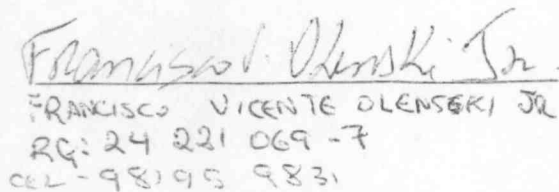 Francisco V. Olenski Jr.
FRANCISCO VICENTE OLENSEKI JR
RG: 24 221 069-7
CEL - 98195 9831